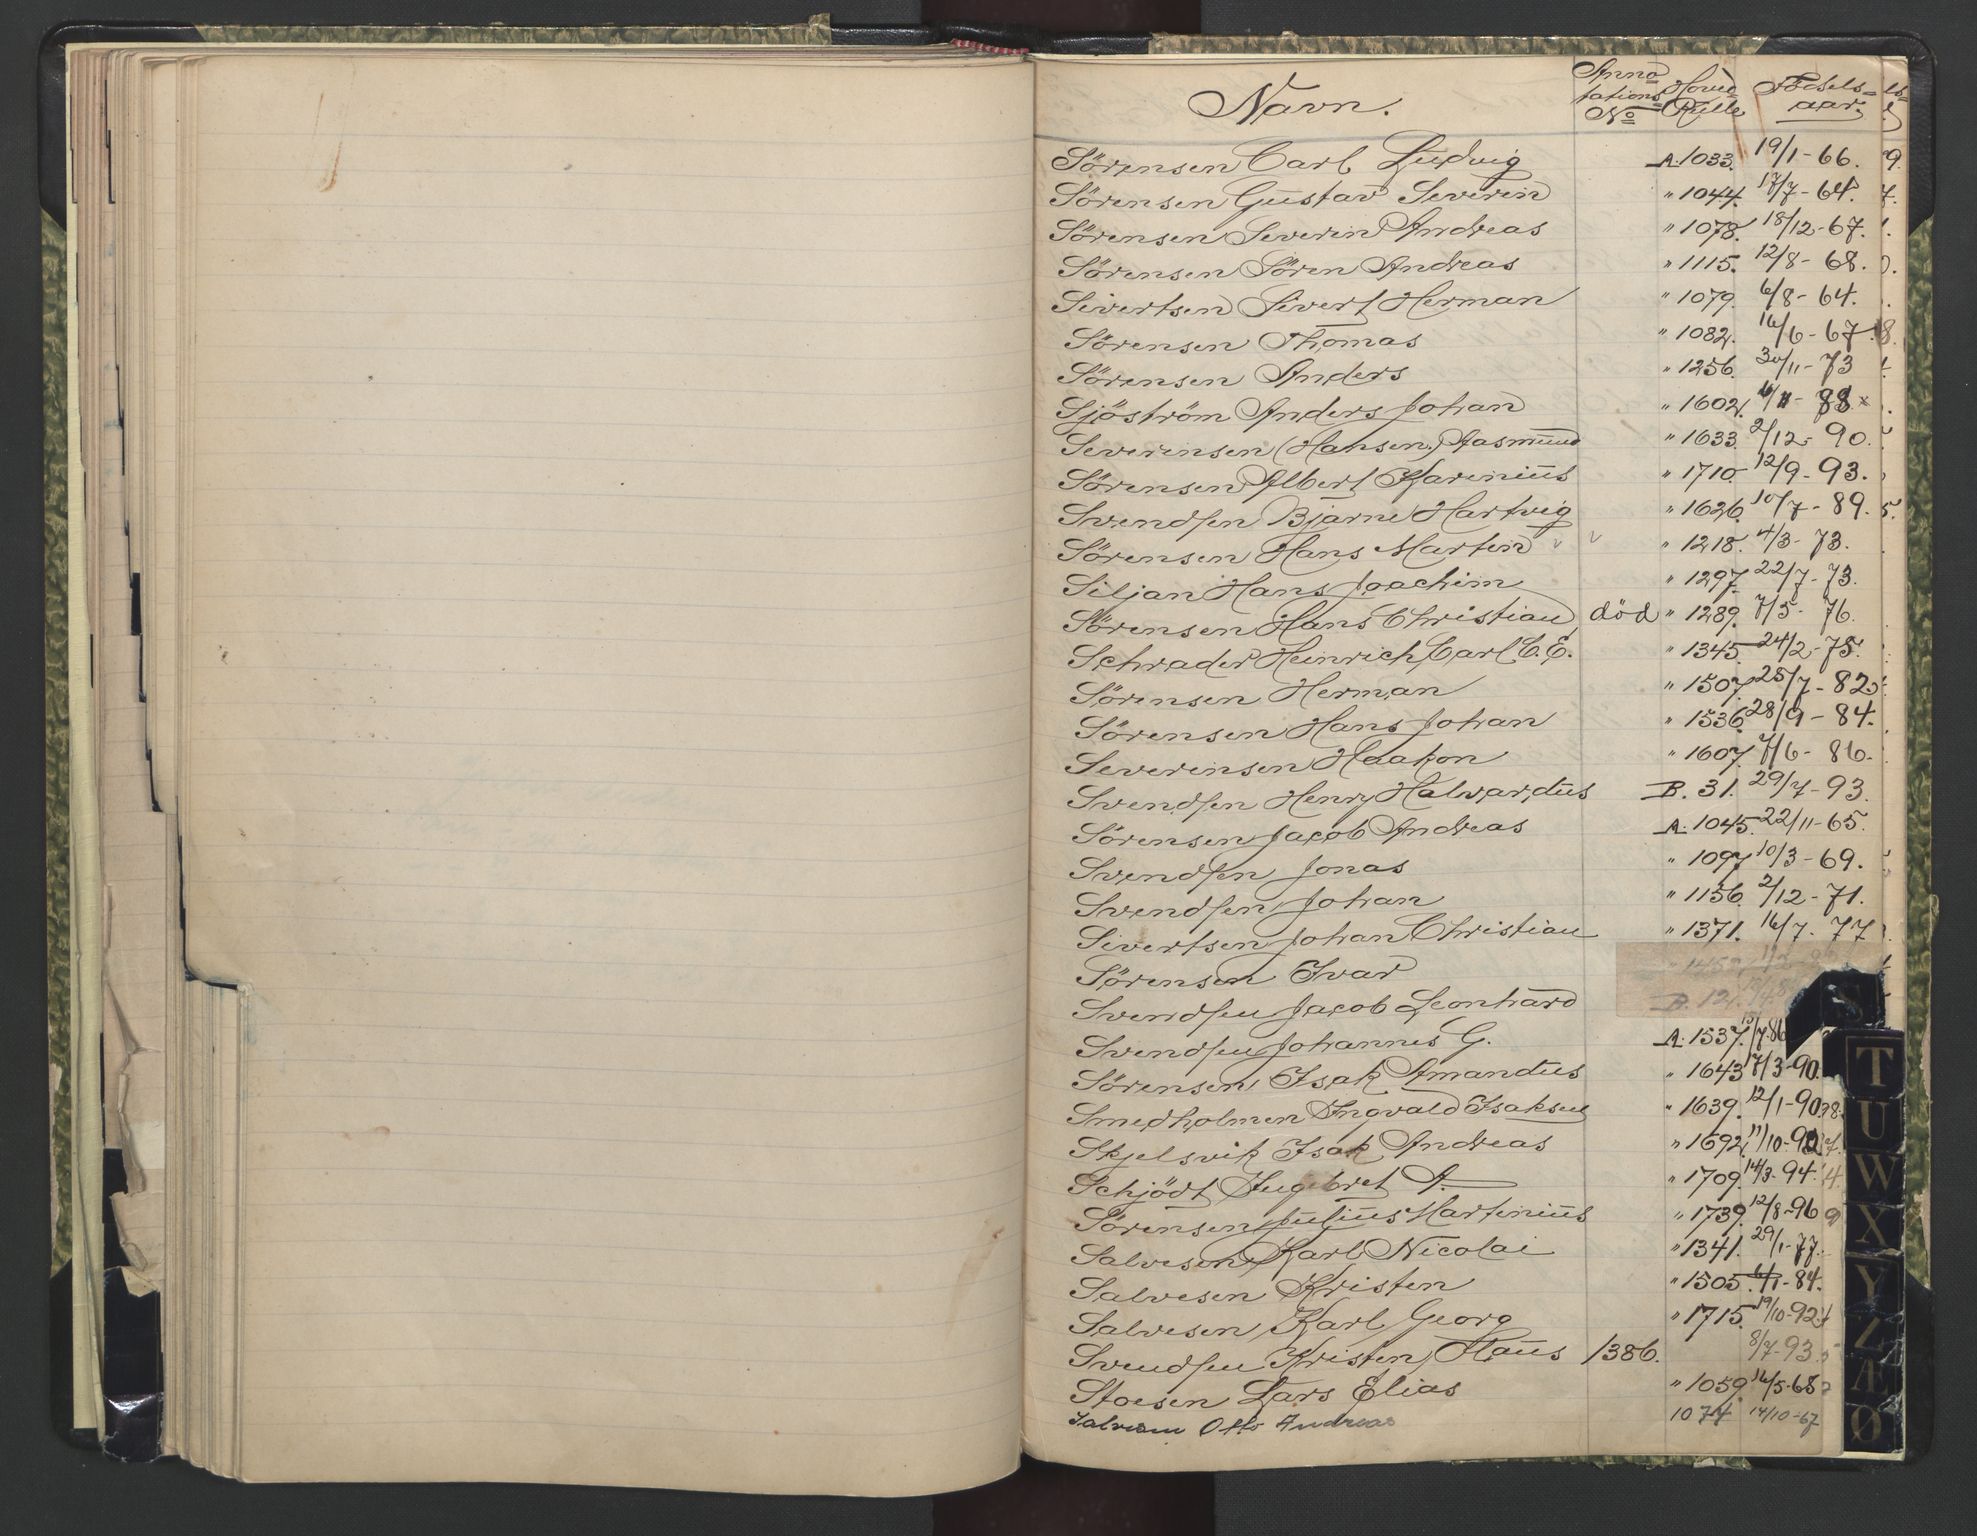 Navn. Annotations No Hoved Rulle Födsels-aar.
Sörensen Carl Ludvig A. 1033. 19/1-66.
Sörensen Gustav Severin " 1044. 17/7-64.
Sörensen Severin Andreas " 1078. 18/12-67.
Sörensen Sören Andreas " 1115. 12/8-68.
Sivertsen Sivert Herman " 1079. 6/8-64.
Sörensen Thomas " 1082. 16/6-67.
Sörensen Anders " 1256. 30/11-73
Sjöström Anders Johan " 1602. 88 x
Severinsen (Hansen) Aasmund " 1633. 2/12-90.
Sörensen Albert Karenius " 1710. 12/9-93.
Svendsen Bjarne Hartvig " 1626. 10/7-89.
Sörensen Hans Martin v v " 1218. 4/3-73.
Siljan Hans Joachim " 1297. 22/7-73.
Sörensen Hans Christian död " 1289. 7/5-76.
Schrader Heinrich, Carl C. E. " 1345. 24/2-75.
Sörensen Herman " 1507. 25/7-82
Sörensen Hans Johan " 1536. 28/9-84.
Severinsen Haakon " 1607. 7/6-86.
Svendsen Henry Halvardus B. 31. 29/7-93.
Sörensen Jacob Andreas A. 1045. 22/11-65.
Svendsen Jonas " 1097. 10/3-69.
Svendsen Johan " 1156. 2/12-71.
Sivertsen Johan Christian " 1371. 16/7-77
Sörensen Ivar
Svendsen Jacob Leonhard B. 121.
Svendsen Johannes G. A. 1537. 15/7-86
Sörensen Isak Amandus " 1643 7/3-90.
Smedholmen Ingvald Isaksen " 1639. 12/1-90
Skjelsvik Isak Andreas " 1692. 11/10-92
Schjödt Ingebret A. " 1709. 14/3-94.
Sörensen Julius Martinius " 1739. 12/8-96
Salvesen Karl Nicolai " 1341. 29/1-77.
Salvesen Kristen " 1505. 6/1-84.
Salvesen Karl Georg " 1715. 19/10-92
Svendsen Kristen Hans 1386. 8/7-93
Stoesen Lars Elias " 1059. 16/5-68
Salvesen Otto Andreas 1074 14/10-67
S
T
U
W
X
Y
Z
Æ
Ø